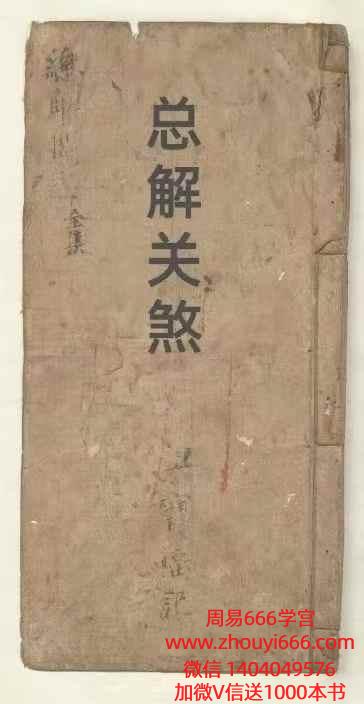 总解关煞
全集
周易666学宫
www.zhouyi666.com
微信 1404049576
加微V信送1000本书